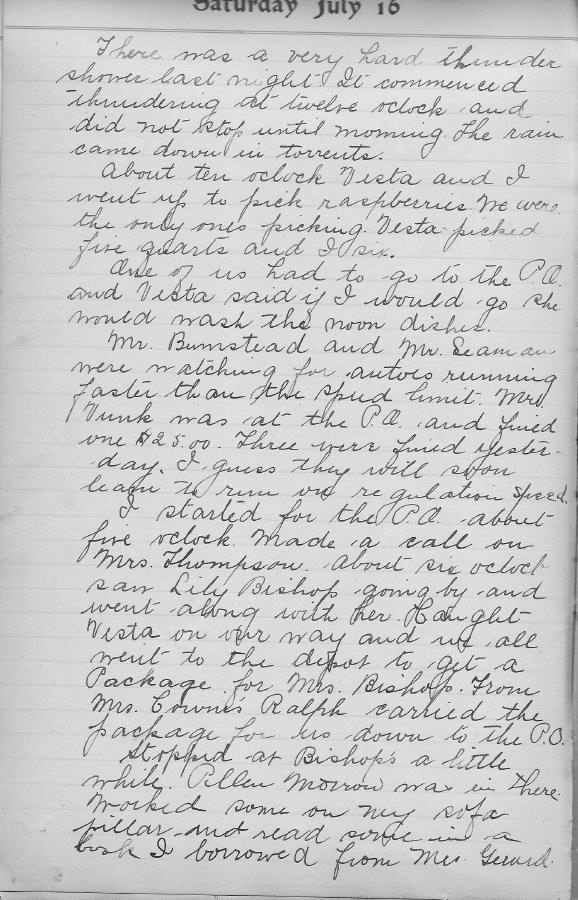 Saturday July 16
There was a very hard thunder
shower last night. It commenced
thundering at twelve oclock and
did not stop until morning. The rain
came down in torrents.
About ten oclock Vesta and I
went up to pick raspberries. We were
the only ones picking. Vesta picked
five quarts and I six.
One of us had to go to the P.O.
and Vesta said if I would go she
would wash the noon dishes.
Mr. Bumstead and Mr. Seaman
were watching for autoes running
faster than the spud limit. Mr.
Vunk was at the P.O. and fined
one $25.00. Three were fined yester-
day. I guess they will soon
learn to run on regulation speed.
I started for the P.O. about
five oclock. Made a call on
Mrs. Thompson. About six oclock
saw Lily Bishop going by and
went along with her. Caught
Vesta on our way and we all
went to the depot to get a
Package for Mrs. Bishop. From
Mrs. Ralph carried the
package for us down to the P.O.
Stopped at Bishop's a little
while. Morrow was in there.
Worked some on my sofa
pillar and read some in a
book I borrowed from Mrs. Gerard.